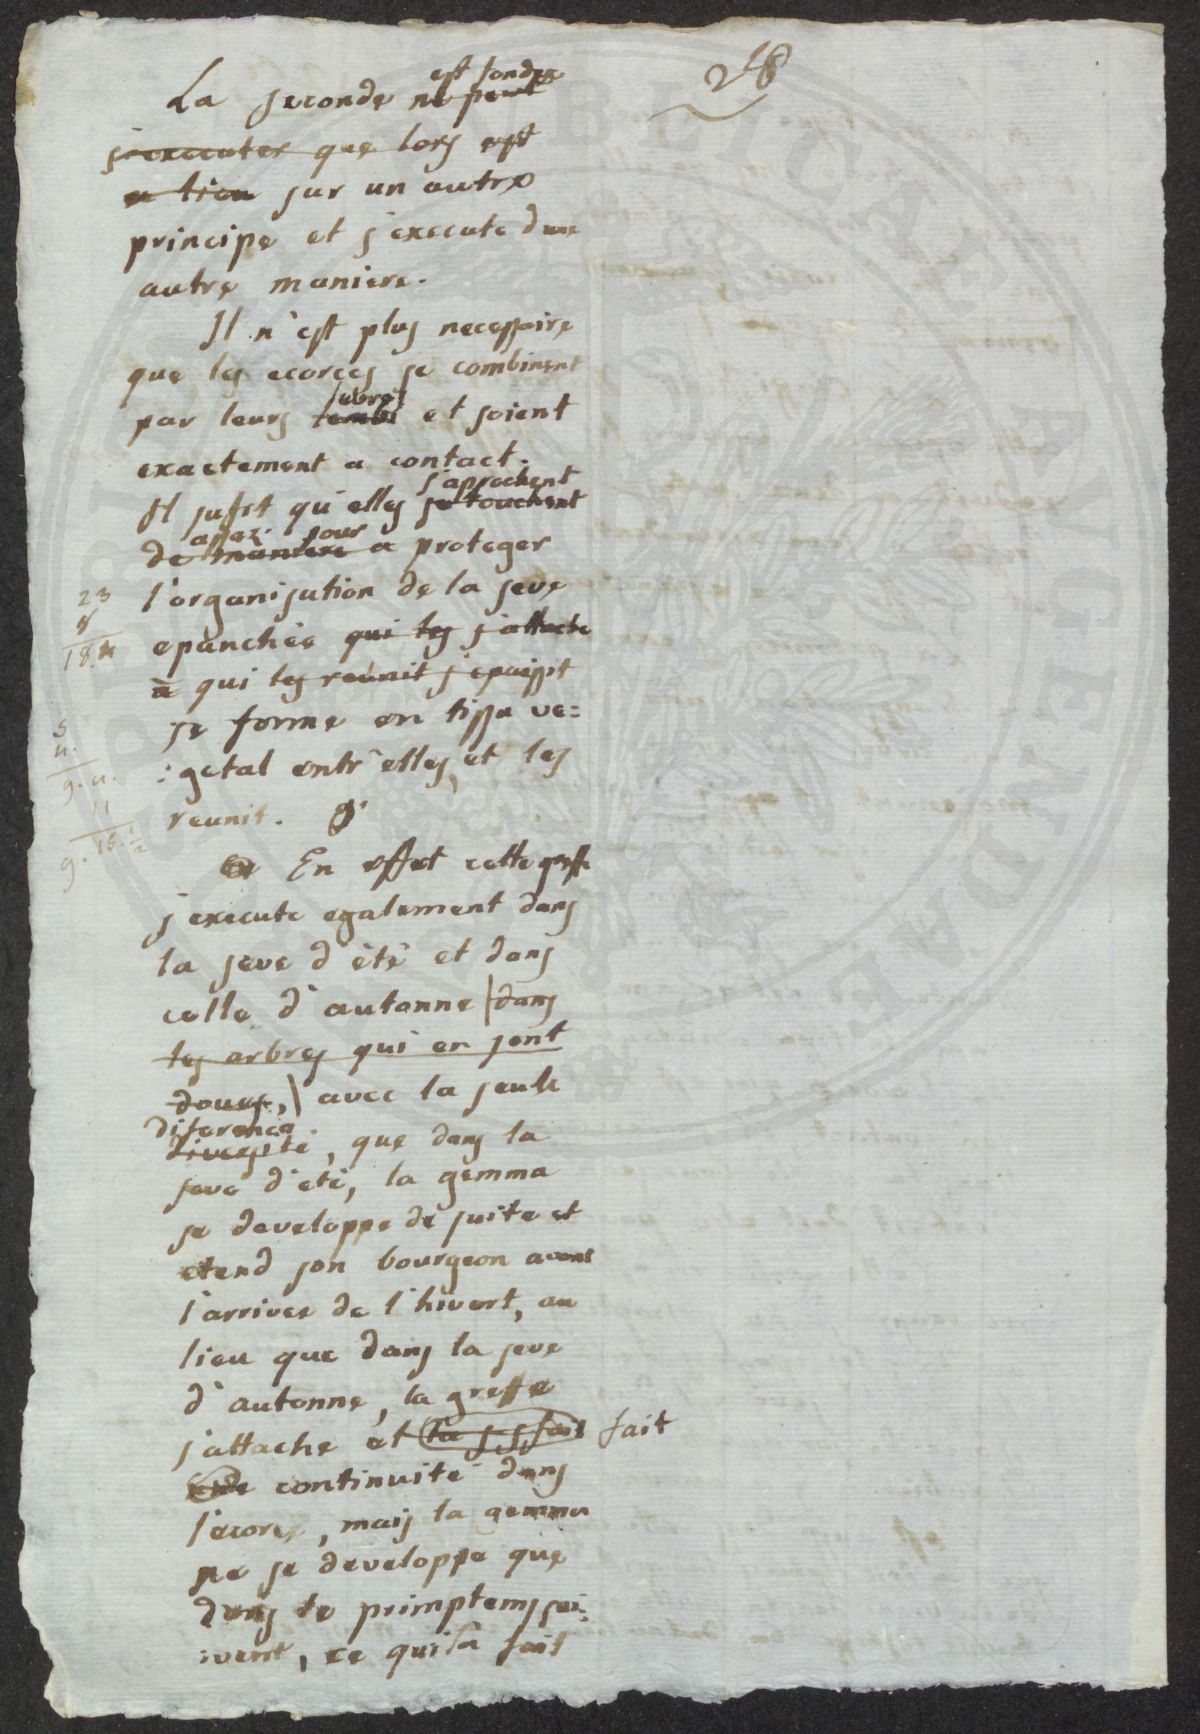 28
est fondée
La seconde ne peut
s'executer que lors est
a lieu sur un autre
principe et s'execute d'une
autre maniere.
Il n'est plus necessaire
que les ecorces se combinent
par leurs levres et soient
exactement a contact.
s'aprochent
Il sufit qu'elles se touchent
assez pour
de maniere a proteger
l'organisation de la seve
epanchée qui les s'attache
à qui les reunit s'epaissit
se forme en tissu ve=
:getal entr'elles, et les
reunit.
En effet cette greffe
s'execute egalement dans
la seve d'été et dans
celle d'autonne |dans
les arbres qui en sont
doues,| avec la seule
diference
diversité, que dans la
seve d'eté, la gemma
se developpe de suite et
etend son bourgeon avant
l'arrivee de l'hivert, au
lieu que dans la seve
d'autonne, la greffe
s'attache et fait
continuité dans
l'ecorce, mais la gemma
ne se developpe que
dans le primptems sui:
:vant, ce qui la fait
23
18
5
u.
9. u.
11
9. 16 1/2